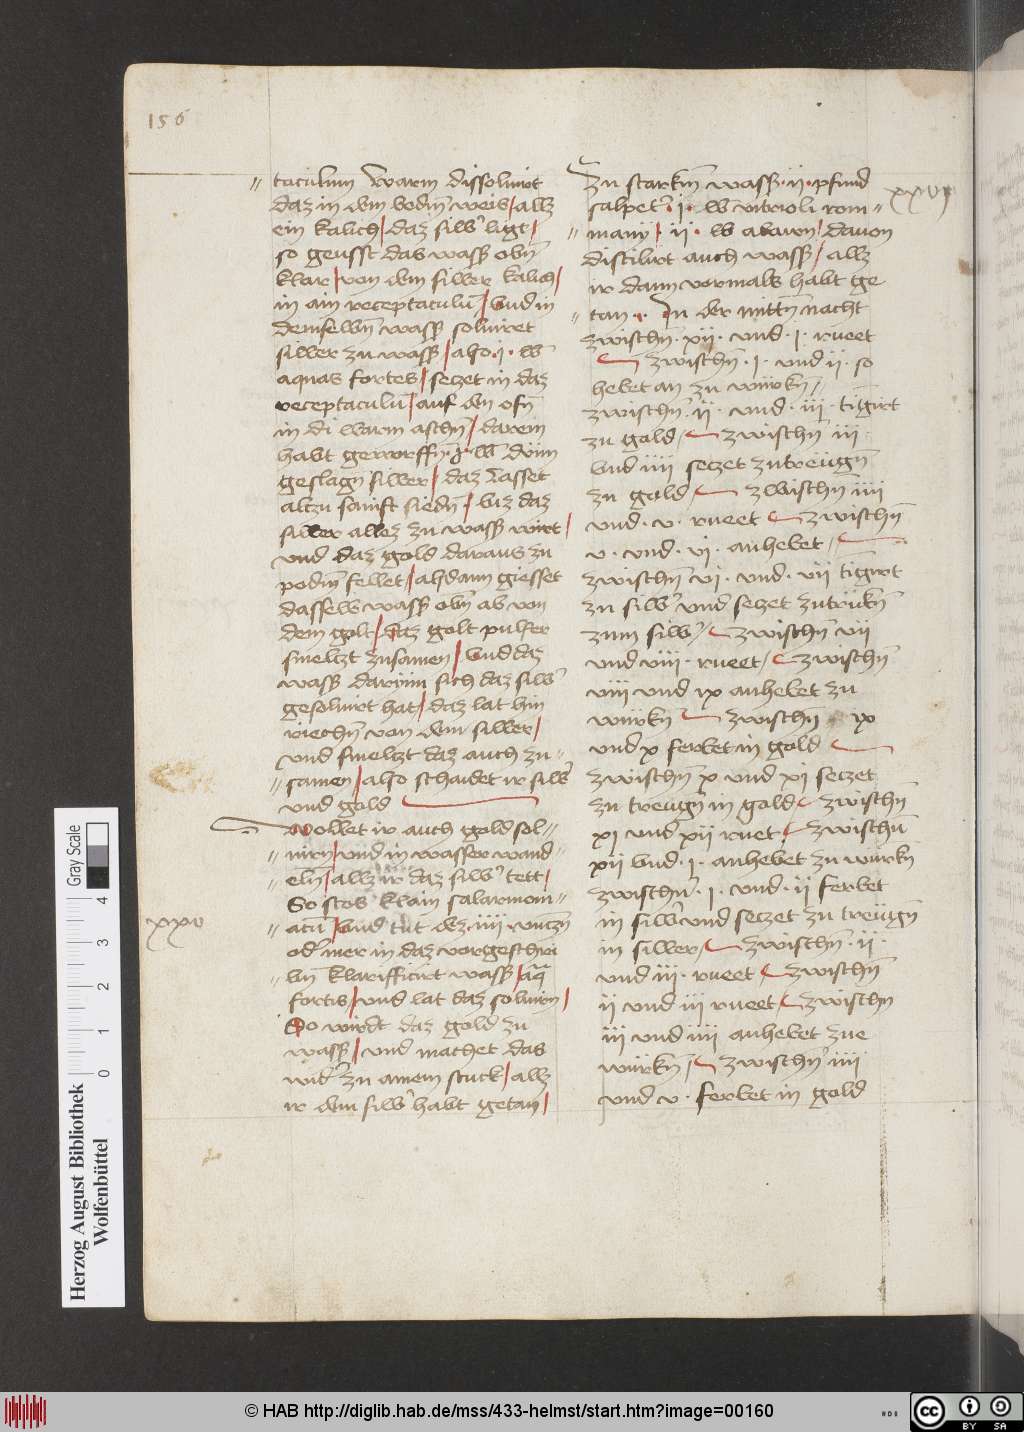 156
taculum Warm dissoluirt
daz in dem bodm̄ weis / allz
ein kalich / daz silb̄ ligt /
so geusst das wass̄ obn̄
klar / von dem silber kalich /
in ain receptaculū / vnd in
demselbn̄ wass̄ soluiret
silber zu wass̄ / also · i · lb̄
aquas fortes / seczet in daz
receptaculū / auf den ofn̄
in di warm aschn̄ / darein
habt geworffn̄ lb̄ dünn
geslagn̄ silber / daz lasset
allzu sanfft siedn̄ / biz daz
silber allez zu wass̄ wirt /
vnd daz gold daraus zu
podm̄ fellet / alsdann giesset
dasselb wass̄ obn̄ ab von
dem golt / daz golt pulfer
smelczt zusamen / vnd daz
wass̄ darinn sich daz silb̄
gesoluirt hat / daz lat hin
riechn̄ von dem silber /
vnd smelczt daz auch zu=
samen / also schaidet ir silb̄
vnd gold
Wollet ir auch gold sol=
uirn / vnd in wasser wand=
eln / allz ir daz silb̄ tett /
So stos klain salarmoni=
xxv
acū / vnd tut dez · iiii · unczn̄
od̄ mer in daz vorgeschri
bn̄ klariffizirt wass̄ / aq̄
fortis / vnd lat daz soluirn /
So wirdt daz gold zu
wass̄ / vnd machet das
wid̄ zu ainem stuck / allz
ir dem silb̄ habt getan /
Zu starkm̄ wass̄ · ii · pfund
xxvi
salpet̄ · i · lb̄ vitrioli rom=
many / · ii · lb̄ alaun / dauon
distilirt auch wass̄ / allz
ir dann vormals habt ge
tan · In der mittn̄ nacht
zwischn̄ · xii · vnd · i · rueet
zwischn̄ · i · vnd ii · so
hebet an zu würkn̄ /
zwischn̄ · ii · vnd · iii · tigirt
zu gold / zwischn̄ iii ·
vnd iiii seczet zutreügn̄
zu gold / zwischn̄ iiii
vnd · v · rueet zwischn̄
v · vnd · vi · anhebet /
zwischn̄ vi · vnd · vii tigirt
zu silb̄ vnd seczet zutrükn̄
zum silb̄ / zwischn̄ vii
vnd viii · rueet / zwischn̄
viii vnd ix anhebet zu
würkn̄ zwischn̄ ix
vnd x ferbet in gold
zwischn̄ x vnd xi seczet
zu treugn̄ in gold zwischn̄
xi vnd xii ruet / zwischn̄
xii vnd · i · anhebet zu würkn̄
zwischn̄ · i · vnd · ii ferbet
in silb̄ vnd seczet zu treügn̄
in silber / zwischn̄ · ii ·
vnd iii · rueet / zwischn̄
ii vnd iii rueet / zwischn̄
iii vnd iiii anhebet zue
würkn̄ / zwischn̄ iiii
vnd v · ferbet in gold
Herzog August Bibliothek
Wolfenbüttel
Gray Scale
0 1 2 3 4
© HAB http://diglib.hab.de/mss/433-helmst/start.htm?image=00160
HDB
cc BY SA